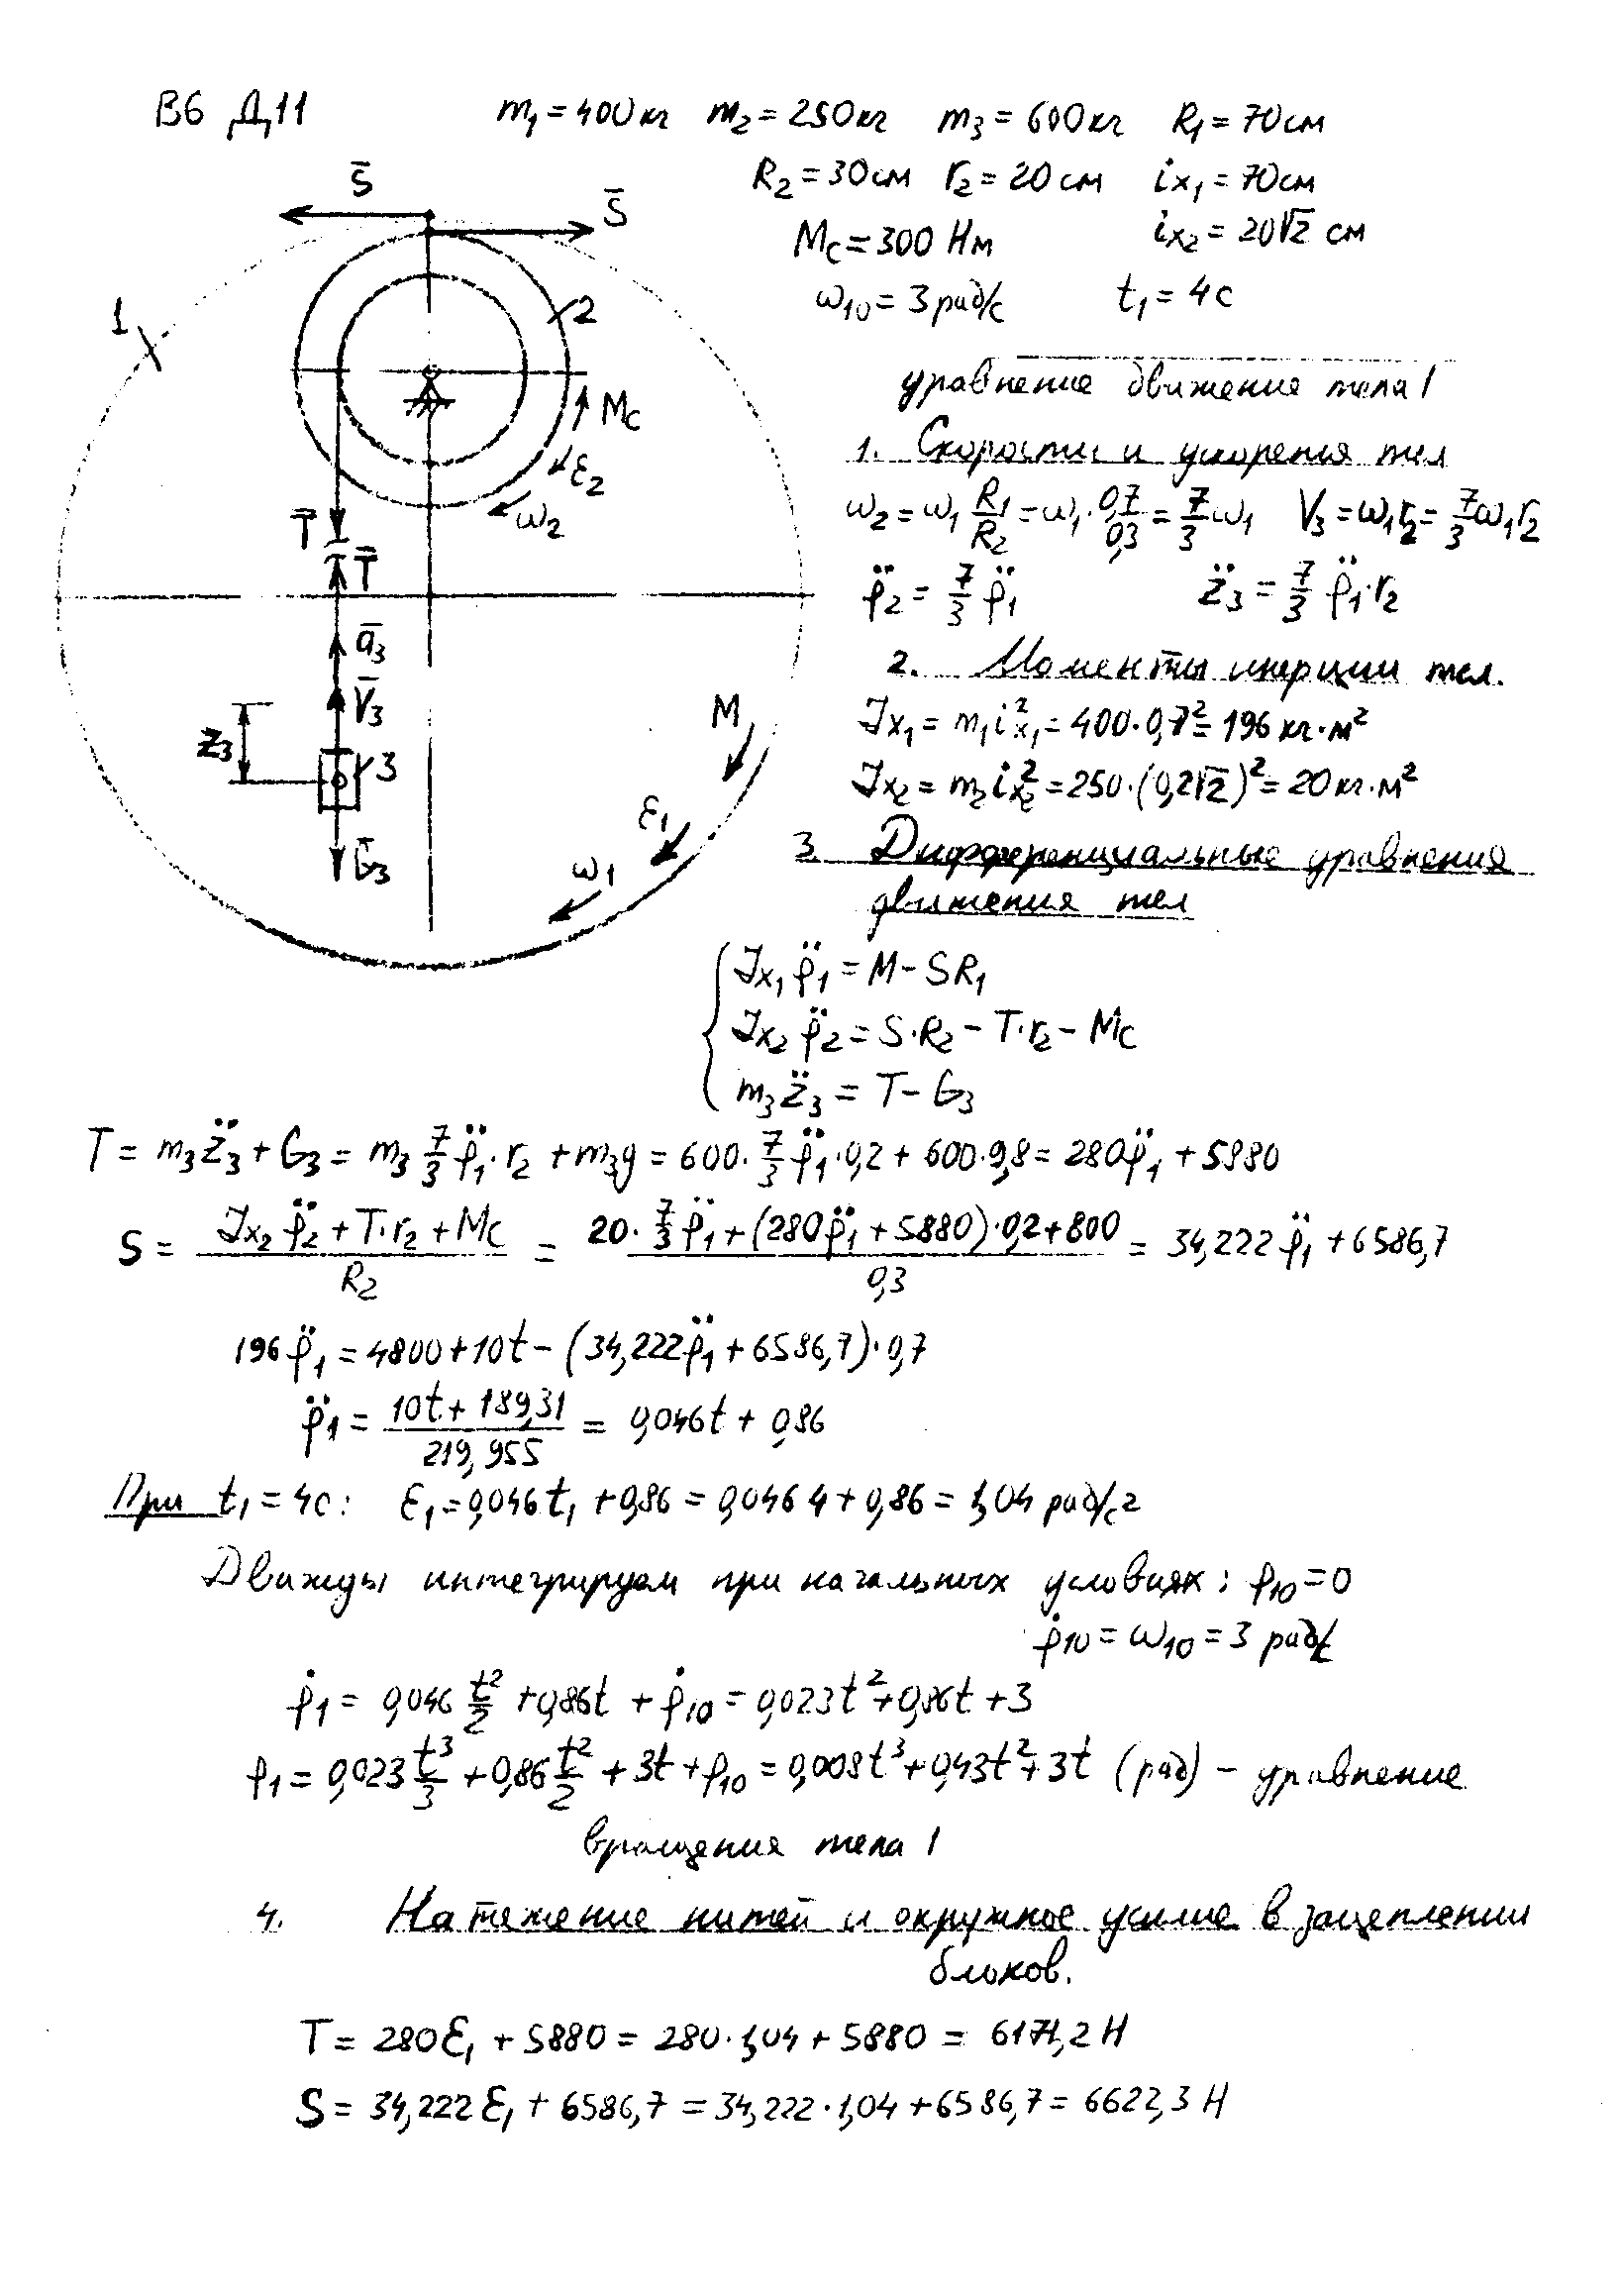 В6 Д11 m₁=400кг m₂=250кг m₃=600кг R₁=70см
R₂=30см r₂=20см ix₁=70см
Mc=300 Нм ix₂=20√2 см
ω₁₀=3рад/с t₁=4с
S̄ S̄
1 2
Mc
ε₂
ω₂
T̄
T̄
ā₃
V̄₃
z₃ 3
Ḡ₃
M
ε₁
ω₁
уравнение движение тела 1
1. Скорости и ускорения тел
ω₂=ω₁ R₁/R₂=ω₁·0,7/0,3=7/3 ω₁ V₃=ω₁r₂=7/3 ω₁r₂
φ̈₂=7/3 φ̈₁ z̈₃=7/3 φ̈₁·r₂
2. Моменты инерции тел.
Jx₁=m₁i²x₁=400·0,7²=196 кг·м²
Jx₂=m₂i²x₂=250·(0,2√2)²=20кг·м²
3. Дифференциальные уравнения
движения тел
Jx₁φ̈₁=M-SR₁
Jx₂φ̈₂=S·R₂-T·r₂-Mc
m₃z̈₃=T-G₃
T=m₃z̈₃+G₃=m₃ 7/3 φ̈₁·r₂+m₃g=600·7/3 φ̈₁·0,2+600·9,8=280φ̈₁+5880
S=(Jx₂φ̈₂+T·r₂+Mc)/R₂=(20·7/3 φ̈₁+(280φ̈₁+5880)·0,2+800)/0,3=34,222φ̈₁+6586,7
196φ̈₁=4800+10t-(34,222φ̈₁+6586,7)·0,7
φ̈₁=(10t+189,31)/219,955=0,046t+0,86
При t₁=4с: ε₁=0,046t₁+0,86=0,046 4+0,86=1,04 рад/с²
Дважды интегрируем при начальных условиях: φ₁₀=0
φ̇₁₀=ω₁₀=3 рад/с
φ̇₁=0,046 t²/2+0,86t+φ̇₁₀=0,023t²+0,86t+3
φ₁=0,023 t³/3+0,86 t²/2+3t+φ₁₀=0,008t³+0,43t²+3t (рад) - уравнение
вращения тела 1
4. Натяжение нитей и окружное усилие в зацеплении
блоков.
T=280ε₁+5880=280·1,04+5880=6171,2 Н
S=34,222ε₁+6586,7=34,222·1,04+6586,7=6622,3 Н